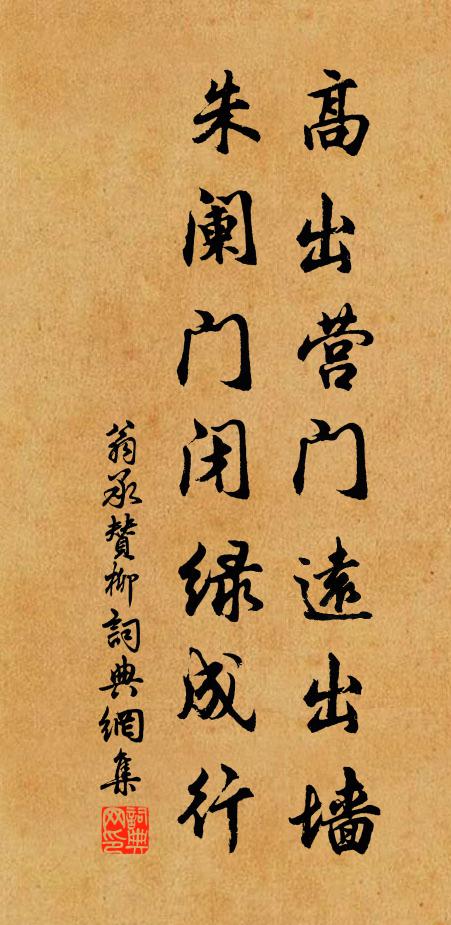 高出营门遠出墙
朱阑门闭绿成行
翁承賛柳詞典網集
詞典网印